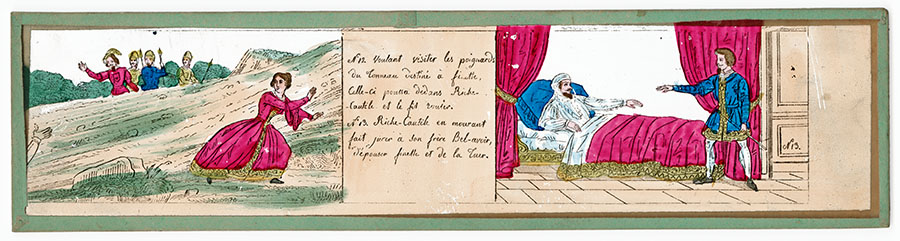 No 12. Voulant visiter les poignards
du tonneau destiné à finette,
Celle-ci poussa dedans Riche-
Cautèle et le fit rouler.
No 13. Riche-Cautèle en mourant
fait jurer à son frère Bel-avoir,
d'épouser finette et de la Tuer.
No 13.